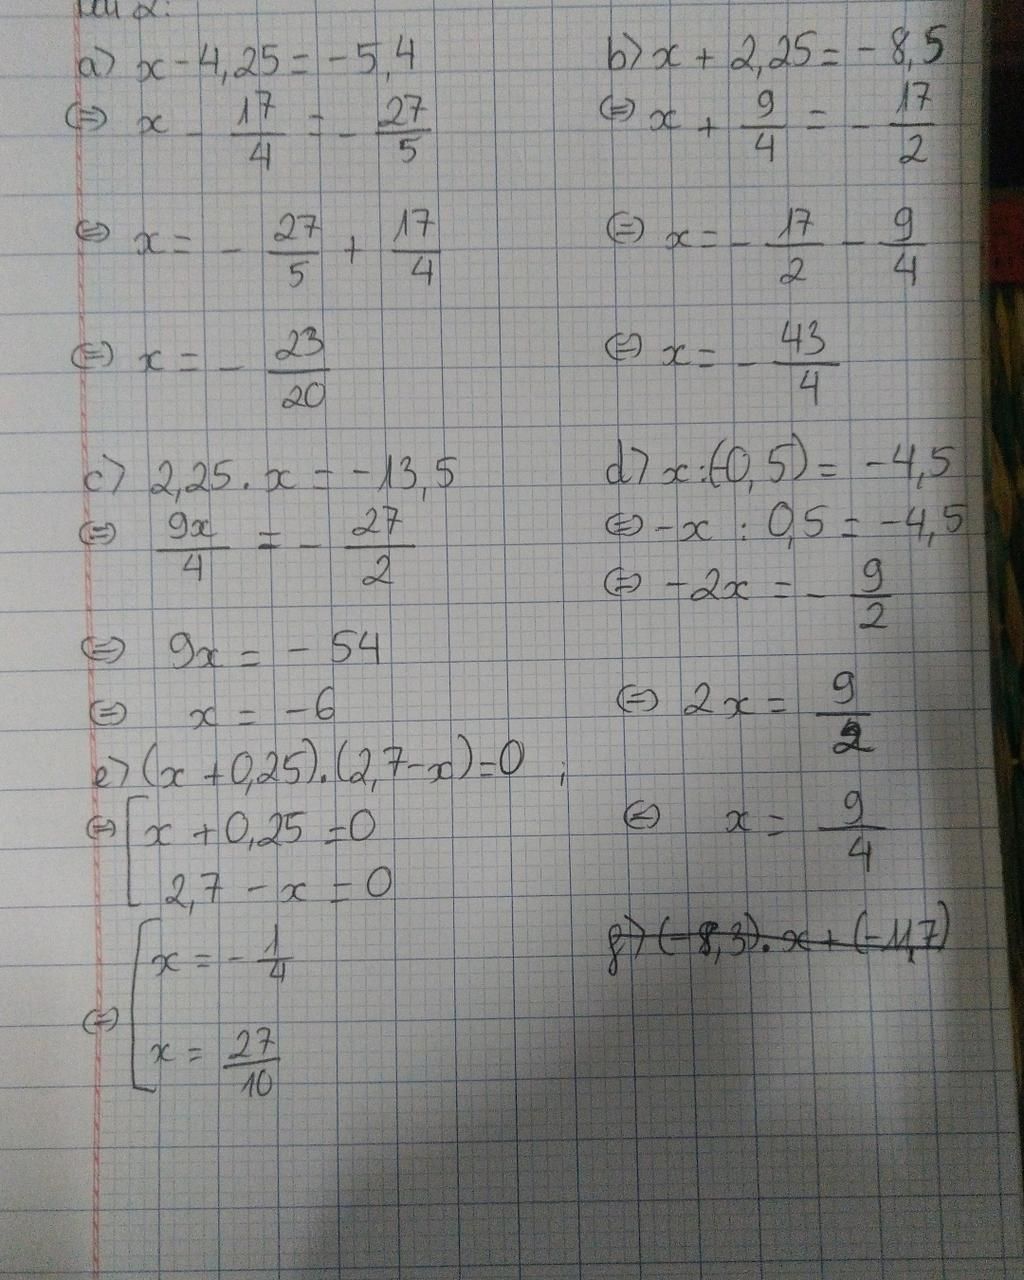 a) x - 4,25 = -5,4
⇔ x - 17/4 = - 27/5
⇔ x = - 27/5 + 17/4
⇔ x = - 23/20
b) x + 2,25 = - 8,5
⇔ x + 9/4 = - 17/2
⇔ x = - 17/2 - 9/4
⇔ x = - 43/4
c) 2,25 . x = -13,5
⇔ 9x/4 = - 27/2
⇔ 9x = - 54
⇔ x = -6
d) x : (-0,5) = -4,5
⇔ -x : 0,5 = -4,5
⇔ -2x = - 9/2
⇔ 2x = 9/2
⇔ x = 9/4
e) (x + 0,25).(2,7 - x) = 0 ;
⇔ [ x + 0,25 = 0
2,7 - x = 0
⇔ [ x = - 1/4
x = 27/10
g) (-8,3) . x + (-1,7)